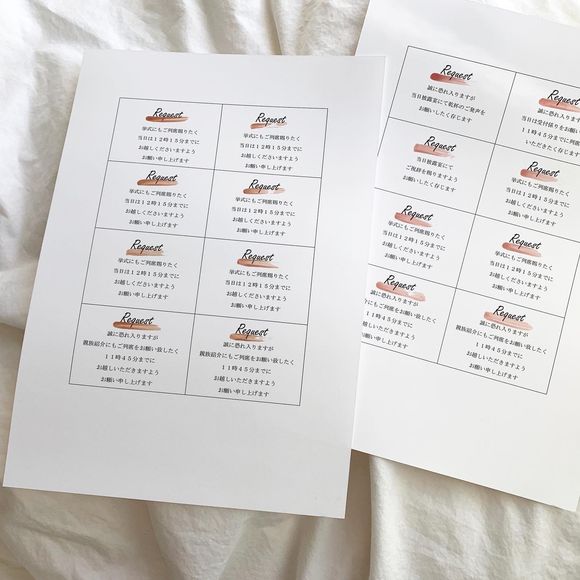 Request
挙式にもご列席賜りたく
当日は１２時１５分までに
お越しくださいますよう
お願い申し上げます
Request
挙式にもご列席賜りたく
当日は１２時１５分までに
お越しくださいますよう
お願い申し上げます
Request
挙式にもご列席賜りたく
当日は１２時１５分までに
お越しくださいますよう
お願い申し上げます
Request
挙式にもご列席賜りたく
当日は１２時１５分までに
お越しくださいますよう
お願い申し上げます
Request
挙式にもご列席賜りたく
当日は１２時１５分までに
お越しくださいますよう
お願い申し上げます
Request
挙式にもご列席賜りたく
当日は１２時１５分までに
お越しくださいますよう
お願い申し上げます
Request
誠に恐れ入りますが
親族紹介にもご列席をお願い致したく
１１時４５分までに
お越しいただきますよう
お願い申し上げます
Request
誠に恐れ入りますが
親族紹介にもご列席をお願い致したく
１１時４５分までに
お越しいただきますよう
お願い申し上げます
Request
誠に恐れ入りますが
当日披露宴にて乾杯のご発声を
お願いしたく存じます
Request
誠に恐れ入りますが
当日は受付係りをお願い
１１時４５分までに
いただきたく存じます
Request
当日披露宴にて
ご祝辞を賜りますよう
お願いしたく存じます
Request
挙式にもご列席賜りたく
当日は１２時１５分までに
お越しくださいますよう
お願い申し上げます
Request
挙式にもご列席賜りたく
当日は１２時１５分までに
お越しくださいますよう
お願い申し上げます
Request
挙式にもご列席賜りたく
当日は１２時１５分までに
お越しくださいますよう
お願い申し上げます
Request
誠に恐れ入りますが
にもご列席をお願い致したく
１１時４５分までに
お越しいただきますよう
お願い申し上げます
Request
誠に恐れ入りますが
親族紹介にもご列席をお願い致したく
１１時４５分までに
お越しいただきますよう
お願い申し上げます